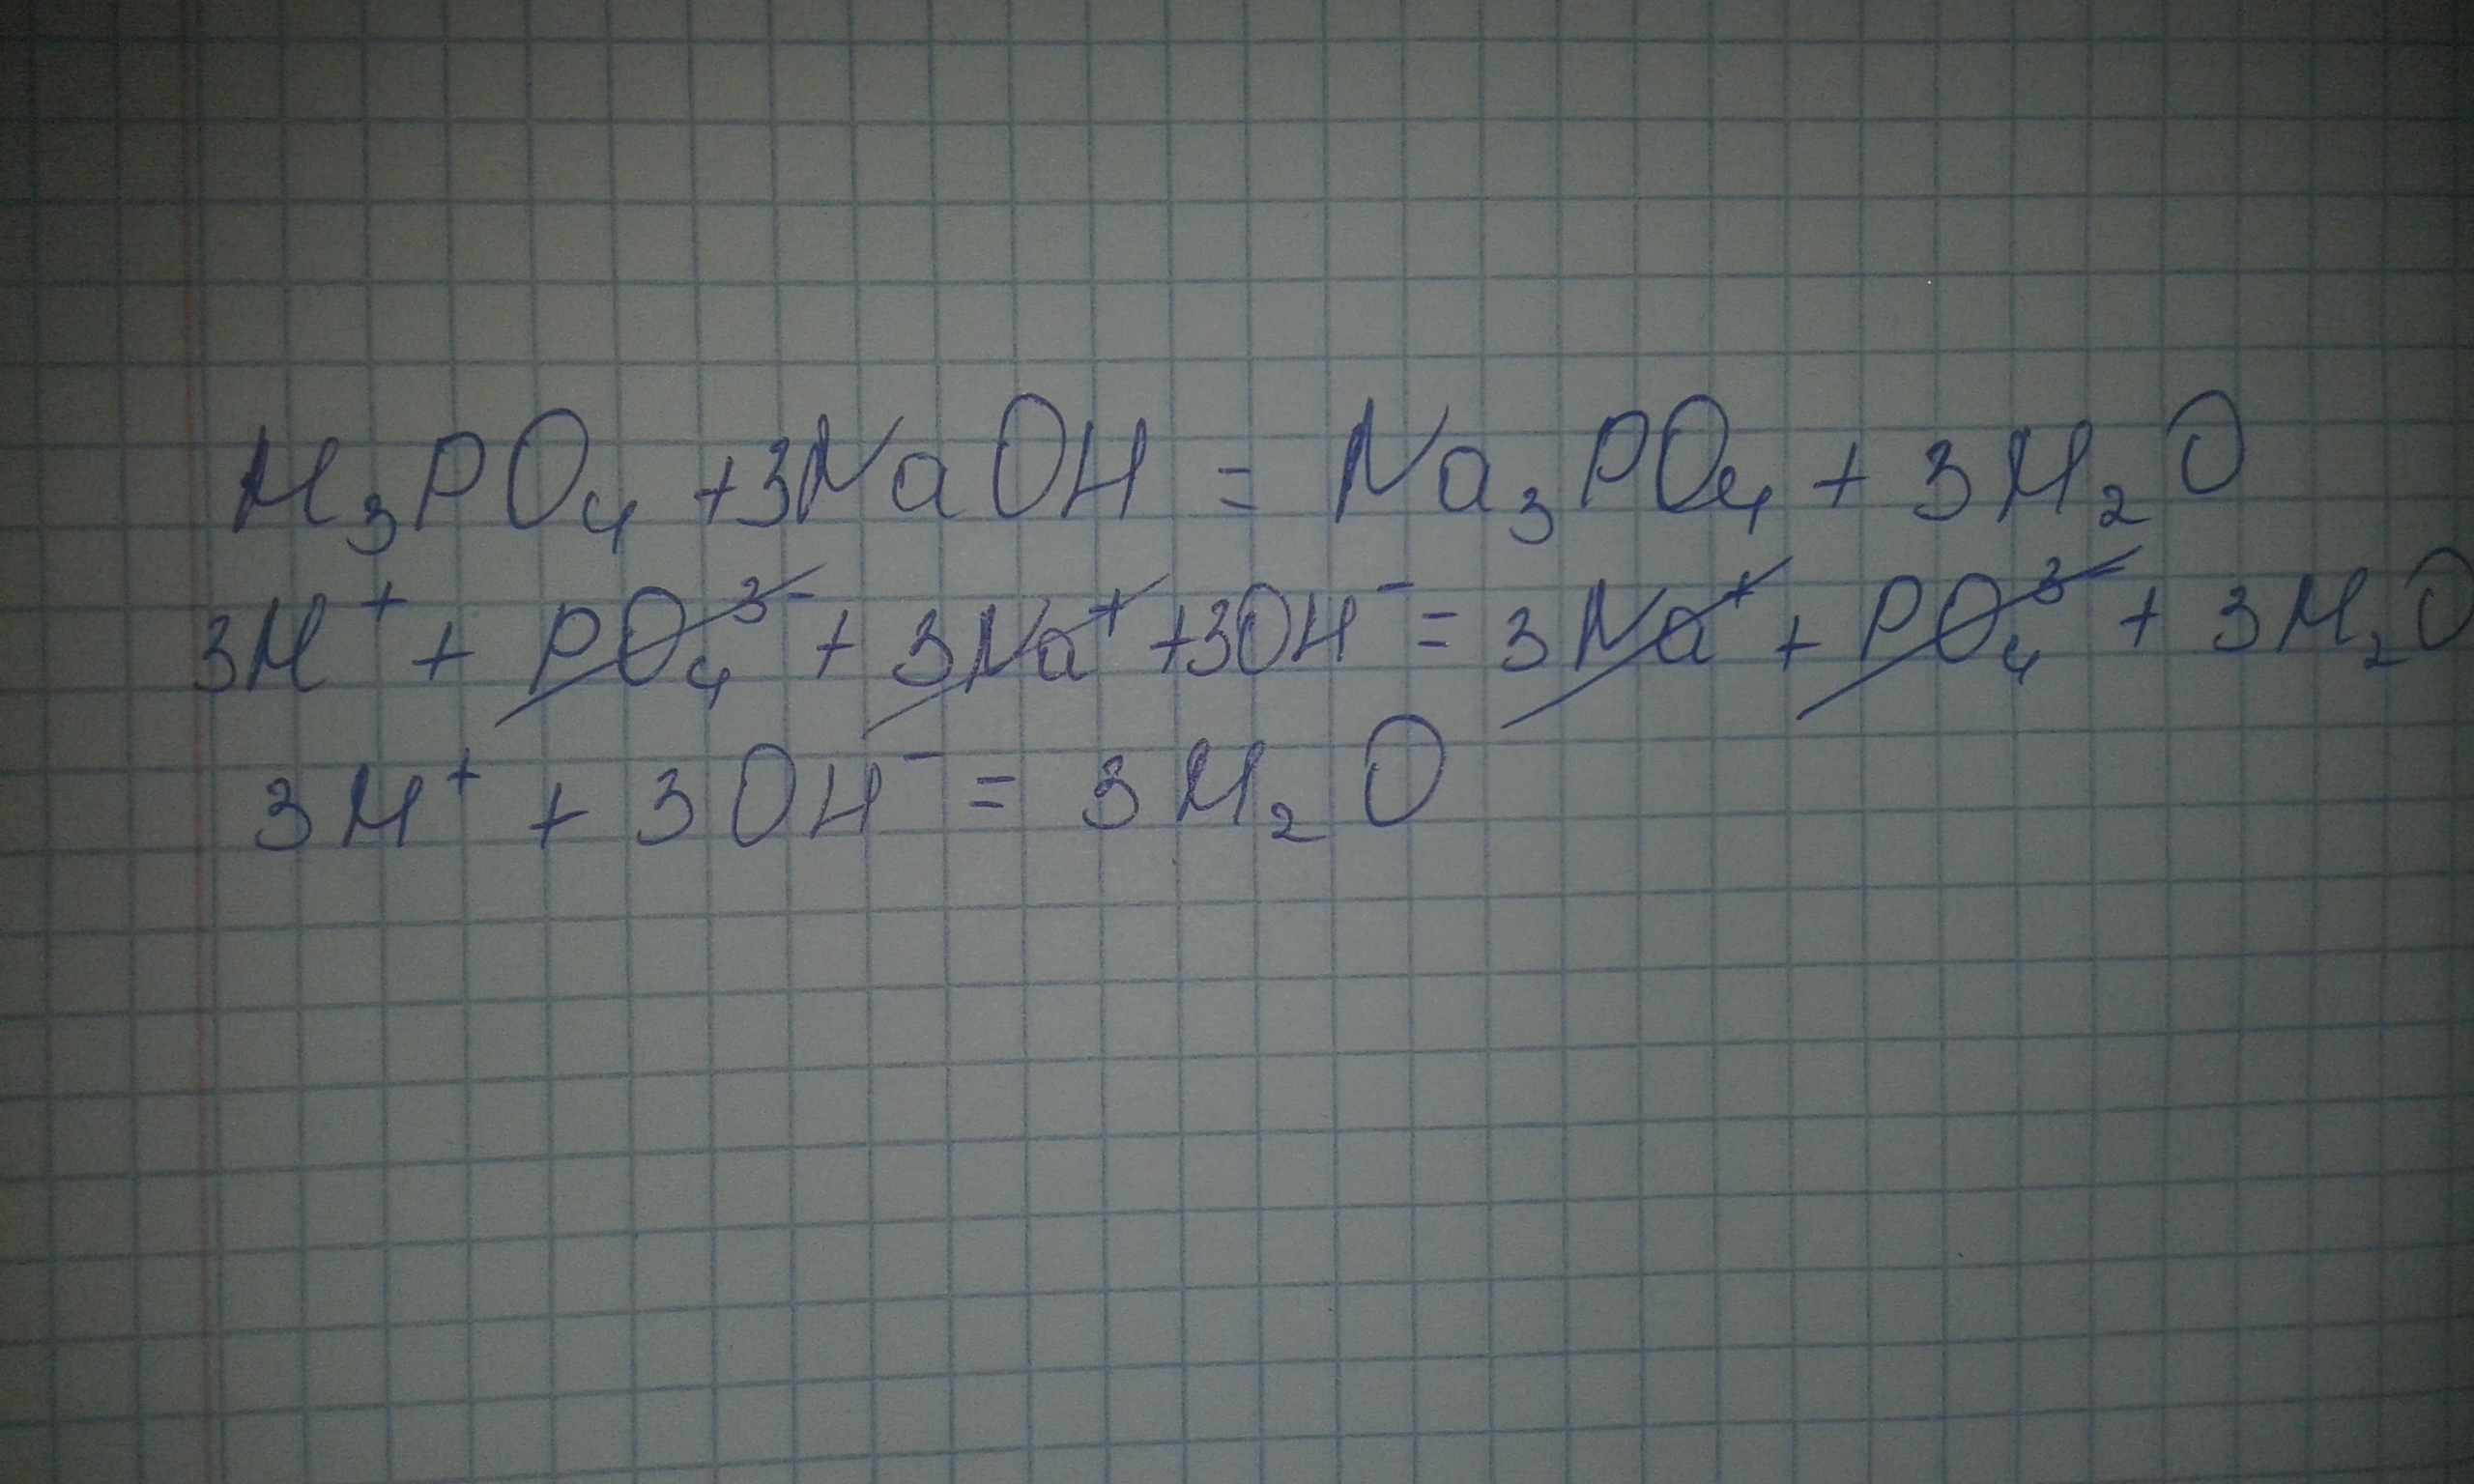 H₃PO₄ +3NaOH = Na₃PO₄ + 3H₂O
3H⁺ + PO₄³⁻ + 3Na⁺ +3OH⁻ = 3Na⁺ + PO₄³⁻ + 3H₂O
3H⁺ + 3OH⁻ = 3H₂O